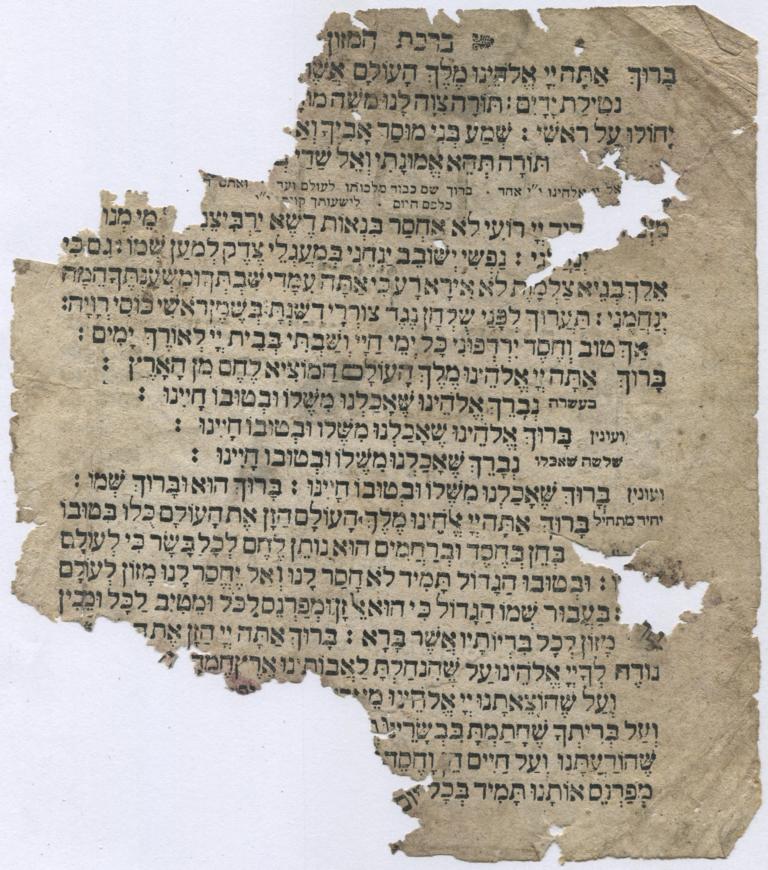 ברכת המזון
בָּרוּךְ אַתָּה יְיָ אֱלֹהֵינוּ מֶלֶךְ הָעוֹלָם
נְטִילַת יָדַיִם: תּוֹרָה צִוָּה לָנוּ מֹשֶׁה
יָחוֹלוּ עַל רֹאשִׁי: שְׁמַע בְּנִי מוּסַר אָבִיךָ
תּוֹרָה תְּהֵא אֱמוּנָתִי וְאֵל שַׁדַּי
אלהינו י"י אחד . ברוך שם כבוד מלכותו לעולם ועד . ואתם
כלכם היום . לישועתך
יְיָ רוֹעִי לֹא אֶחְסָר בִּנְאוֹת דֶּשֶׁא יַרְבִּיצֵנִי מֵי מְנוּ
נַפְשִׁי יְשׁוֹבֵב יַנְחֵנִי בְמַעְגְּלֵי צֶדֶק לְמַעַן שְׁמוֹ: גַּם כִּי
אֵלֵךְ בְּגֵיא צַלְמָוֶת לֹא אִירָא רָע כִּי אַתָּה עִמָּדִי שִׁבְתְּךָ וּמִשְׁעַנְתֶּךָ הֵמָּה
יְנַחֲמֻנִי: תַּעֲרוֹךְ לְפָנַי שֻׁלְחָן נֶגֶד צוֹרְרָי דִּשַּׁנְתָּ בַשֶּׁמֶן רֹאשִׁי כּוֹסִי רְוָיָה:
אַךְ טוֹב וָחֶסֶד יִרְדְּפוּנִי כָּל יְמֵי חַיַּי וְשַׁבְתִּי בְּבֵית יְיָ לְאוֹרֶךְ יָמִים:
בָּרוּךְ אַתָּה יְיָ אֱלֹהֵינוּ מֶלֶךְ הָעוֹלָם הַמּוֹצִיא לֶחֶם מִן הָאָרֶץ:
בעשרה נְבָרֵךְ אֱלֹהֵינוּ שֶׁאָכַלְנוּ מִשֶּׁלּוֹ וּבְטוּבוֹ חָיִינוּ:
ועונין בָּרוּךְ אֱלֹהֵינוּ שֶׁאָכַלְנוּ מִשֶּׁלּוֹ וּבְטוּבוֹ חָיִינוּ:
שלשה שאכלו נְבָרֵךְ שֶׁאָכַלְנוּ מִשֶּׁלּוֹ וּבְטוּבוֹ חָיִינוּ:
ועונין בָּרוּךְ שֶׁאָכַלְנוּ מִשֶּׁלּוֹ וּבְטוּבוֹ חָיִינוּ: בָּרוּךְ הוּא וּבָרוּךְ שְׁמוֹ:
יחיד מתחיל בָּרוּךְ אַתָּה יְיָ אֱלֹהֵינוּ מֶלֶךְ הָעוֹלָם הַזָּן אֶת הָעוֹלָם כֻּלּוֹ בְּטוּבוֹ
בְּחֵן בְּחֶסֶד וּבְרַחֲמִים הוּא נוֹתֵן לֶחֶם לְכָל בָּשָׂר כִּי לְעוֹלָם
וּבְטוּבוֹ הַגָּדוֹל תָּמִיד לֹא חָסַר לָנוּ וְאַל יֶחְסַר לָנוּ מָזוֹן לְעוֹלָם
בַּעֲבוּר שְׁמוֹ הַגָּדוֹל כִּי הוּא אֵל זָן וּמְפַרְנֵס לַכֹּל וּמֵטִיב לַכֹּל וּמֵכִין
מָזוֹן לְכָל בְּרִיּוֹתָיו אֲשֶׁר בָּרָא: בָּרוּךְ אַתָּה יְיָ הַזָּן אֶת
נוֹדֶה לְךָ יְיָ אֱלֹהֵינוּ עַל שֶׁהִנְחַלְתָּ לַאֲבוֹתֵינוּ אֶרֶץ חֶמְדָּה
וְעַל שֶׁהוֹצֵאתָנוּ יְיָ אֱלֹהֵינוּ
וְעַל בְּרִיתְךָ שֶׁחָתַמְתָּ בִּבְשָׂרֵינוּ
שֶׁהוֹדַעְתָּנוּ וְעַל חַיִּים חֵן וָחֶסֶד
מְפַרְנֵס אוֹתָנוּ תָּמִיד בְּכָל יוֹם